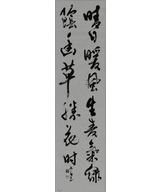 晴日暖風生麥氣綠
陰幽草勝花時